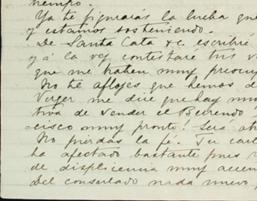 tiempo.
Ya te figurarás la lucha que
y estamos sosteniendo.
De Santa Cata &c. escribiré
y a la vez contestaré tus
que me traen muy preocup
No te aflojes que hemos d
Vrger me dice que hay mu
tiva de vender el Berrendo
cisco muy pronto! Será
No pierdas la fé. Tu cart
ha afectado bastante pues
de displicencia muy acen
Del consulado nada nuevo